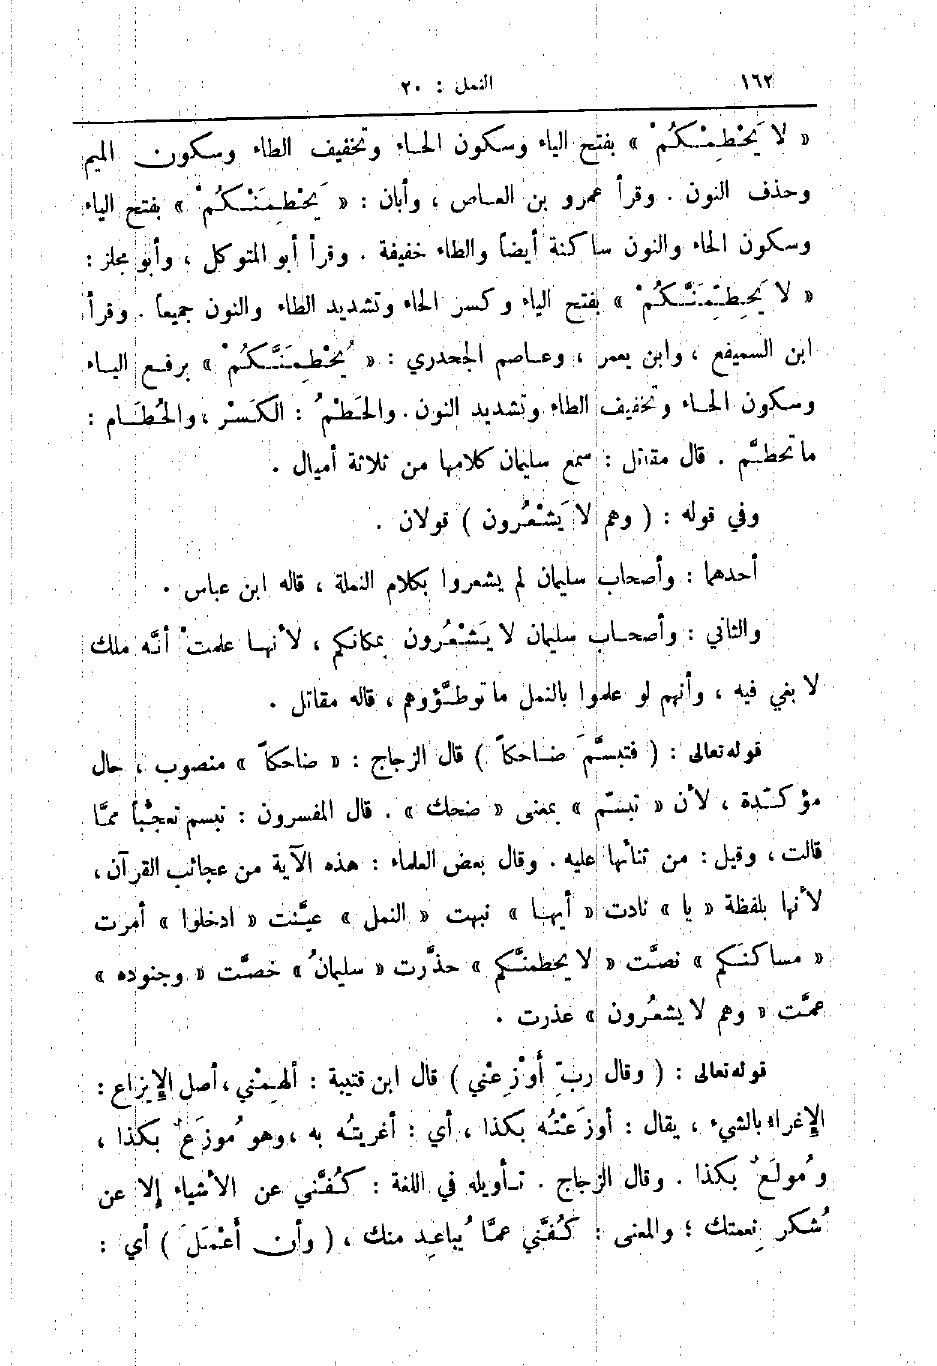 ١٦٢ النمل : ٢٠
« لا يَحْطِمْكُمْ » بفتح الياء وسكون الحاء وتخفيف الطاء وسكون الميم
وحذف النون . وقرأ عمرو بن العاص ، وأبان : « يَحْطِمَنْكُمْ » بفتح الياء
وسكون الحاء والنون ساكنة أيضاً والطاء خفيفة . وقرأ أبو المتوكل ، وأبو مجلز :
« لا يَحِطِّمَنَّكُمْ » بفتح الياء وكسر الحاء وتشديد الطاء والنون جميعاً . وقرأ
ابن السميفع ، وابن يعمر ، وعاصم الجحدري : « يُحْطِمَنَّكُمْ » برفع الياء
وسكون الحاء وتخفيف الطاء وتشديد النون . والحَطْمُ : الكَسْر ، والحُطَام :
ما تحطَّم . قال مقاتل : سمع سليمان كلامها من ثلاثة أميال .
وفي قوله : ( وهم لا يَشْعُرون ) قولان .
أحدهما : وأصحاب سليمان لم يشعروا بكلام النملة ، قاله ابن عباس .
والثاني : وأصحاب سليمان لا يَشْعُرون بمكانكم ، لأنها علمتْ أنَّه ملك
لا بغي فيه ، وأنهم لو علموا بالنمل ما توطَّؤوهم ، قاله مقاتل .
قوله تعالى : ( فتبسَّمَ ضاحكاً ) قال الزجاج : « ضاحكاً » منصوب ، حال
مؤكّدة ، لأن « تبسّم » بمعنى « ضحك » . قال المفسرون : تبسم تعجُّباً ممَّا
قالت ، وقيل : من ثنائها عليه . وقال بعض العلماء : هذه الآية من عجائب القرآن ،
لأنها بلفظة « يا » نادت « أيها » نبهت « النمل » عيَّنت « ادخلوا » أمرت
« مساكنَكم » نصَّت « لا يحطمنَّكم » حذَّرت « سليمانُ » خصَّت « وجنوده »
عمَّت « وهم لا يشعُرون » عذرت .
قوله تعالى : ( وقال ربِّ أَوْزِعْني ) قال ابن قتيبة : ألهِمْني ، أصل الإيزاع :
الإغراء بالشيء ، يقال : أوزَعْتُه بكذا ، أي : أغريتُه به ، وهو مُوزَعٌ بكذا ،
ومُولَعٌ بكذا . وقال الزجاج . تأويله في اللغة : كُفَّني عن الأشياء إلا عن
شُكر نِعمتك ؛ والمعنى : كُفَّني عمَّا يُباعِد منك ، ( وأن أَعْمَلَ ) أي :